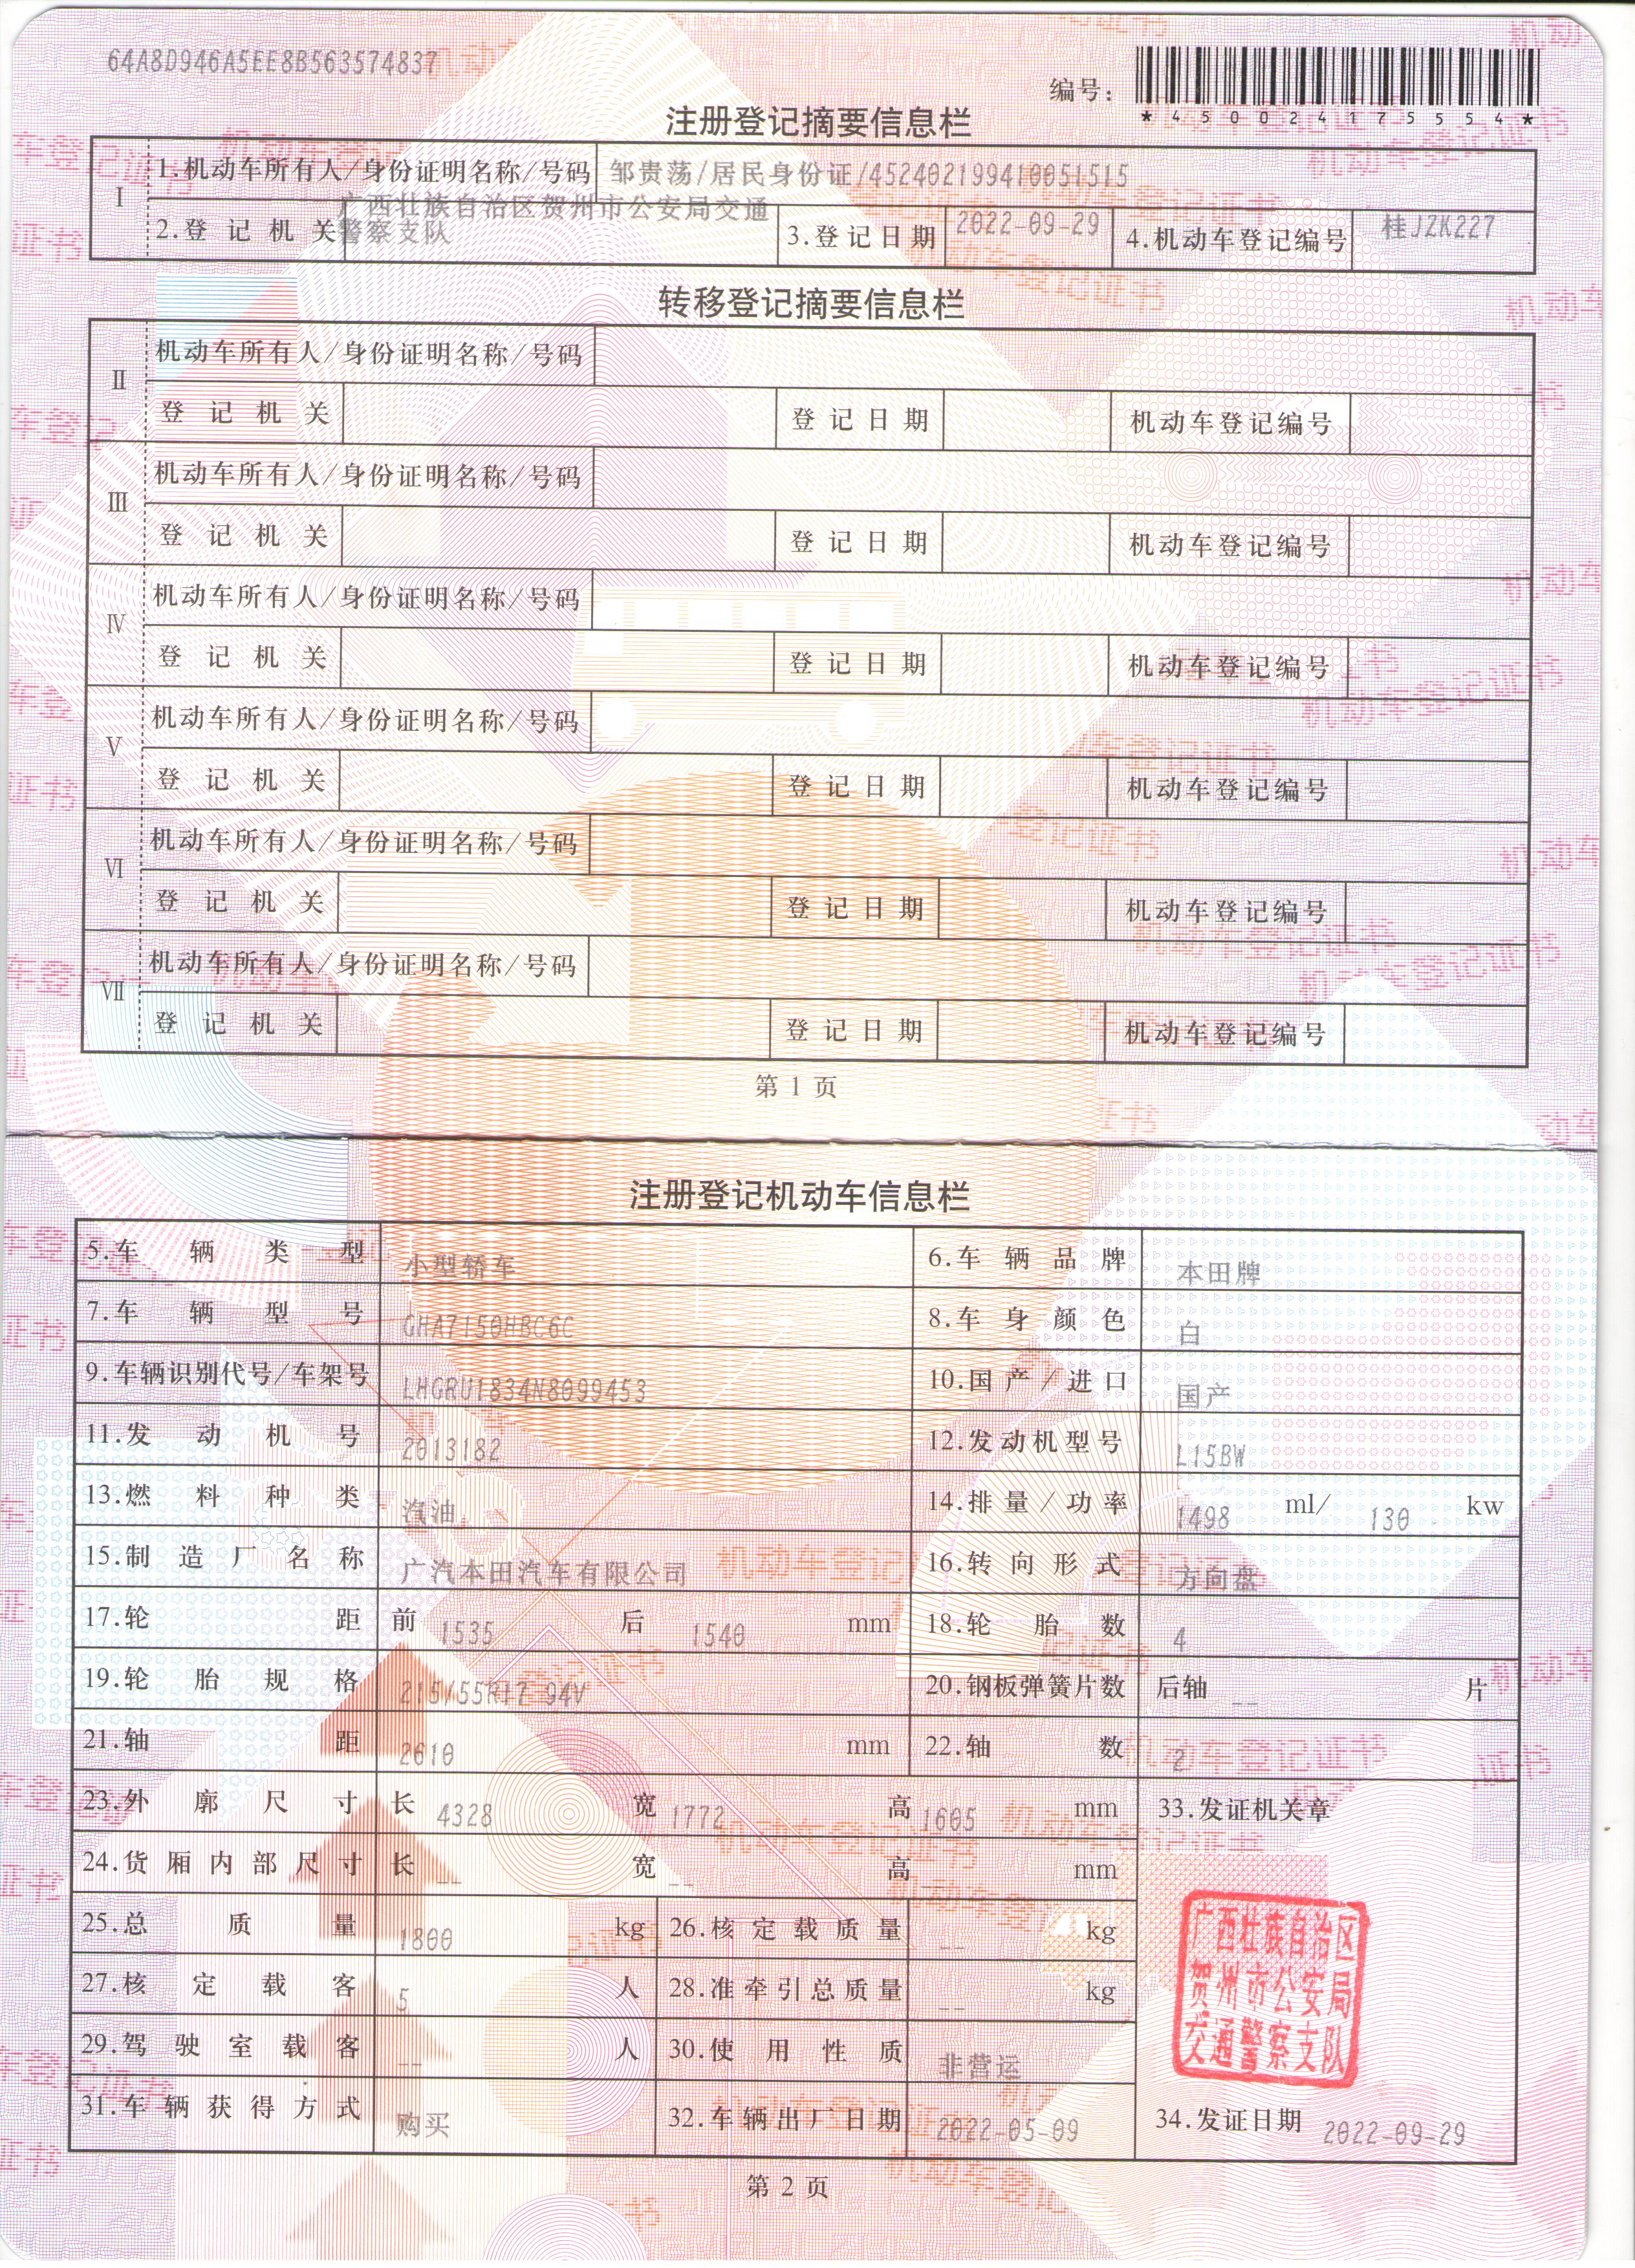 64A8D946A5EE8B563574837
编号：
*450024175554*
注册登记摘要信息栏
I
1.机动车所有人/身份证明名称/号码 邹贵荡/居民身份证/452402199410051515
2.登记机关 广西壮族自治区贺州市公安局交通警察支队 3.登记日期 2022-09-29 4.机动车登记编号 桂JZK227
转移登记摘要信息栏
II 机动车所有人/身份证明名称/号码
登记机关 登记日期 机动车登记编号
III 机动车所有人/身份证明名称/号码
登记机关 登记日期 机动车登记编号
IV 机动车所有人/身份证明名称/号码
登记机关 登记日期 机动车登记编号
V 机动车所有人/身份证明名称/号码
登记机关 登记日期 机动车登记编号
VI 机动车所有人/身份证明名称/号码
登记机关 登记日期 机动车登记编号
VII 机动车所有人/身份证明名称/号码
登记机关 登记日期 机动车登记编号
第 1 页
注册登记机动车信息栏
5.车辆类型 小型轿车 6.车辆品牌 本田牌
7.车辆型号 GHA7150HBC6C 8.车身颜色 白
9.车辆识别代号/车架号 LHGRU1834N8099453 10.国产/进口 国产
11.发动机号 2013182 12.发动机型号 L15BW
13.燃料种类 汽油 14.排量/功率 1498 ml/ 130 kw
15.制造厂名称 广汽本田汽车有限公司 16.转向形式 方向盘
17.轮距 前 1535 后 1540 mm 18.轮胎数 4
19.轮胎规格 215/55R17 94V 20.钢板弹簧片数 后轴 -- 片
21.轴距 2610 mm 22.轴数 2
23.外廓尺寸 长 4328 宽 1772 高 1605 mm 33.发证机关章
24.货厢内部尺寸 长 -- 宽 -- 高 mm
25.总质量 1800 kg 26.核定载质量 -- kg
27.核定载客 5 人 28.准牵引总质量 -- kg
29.驾驶室载客 -- 人 30.使用性质 非营运
31.车辆获得方式 购买 32.车辆出厂日期 2022-05-09 34.发证日期 2022-09-29
广西壮族自治区
贺州市公安局
交通警察支队
第 2 页